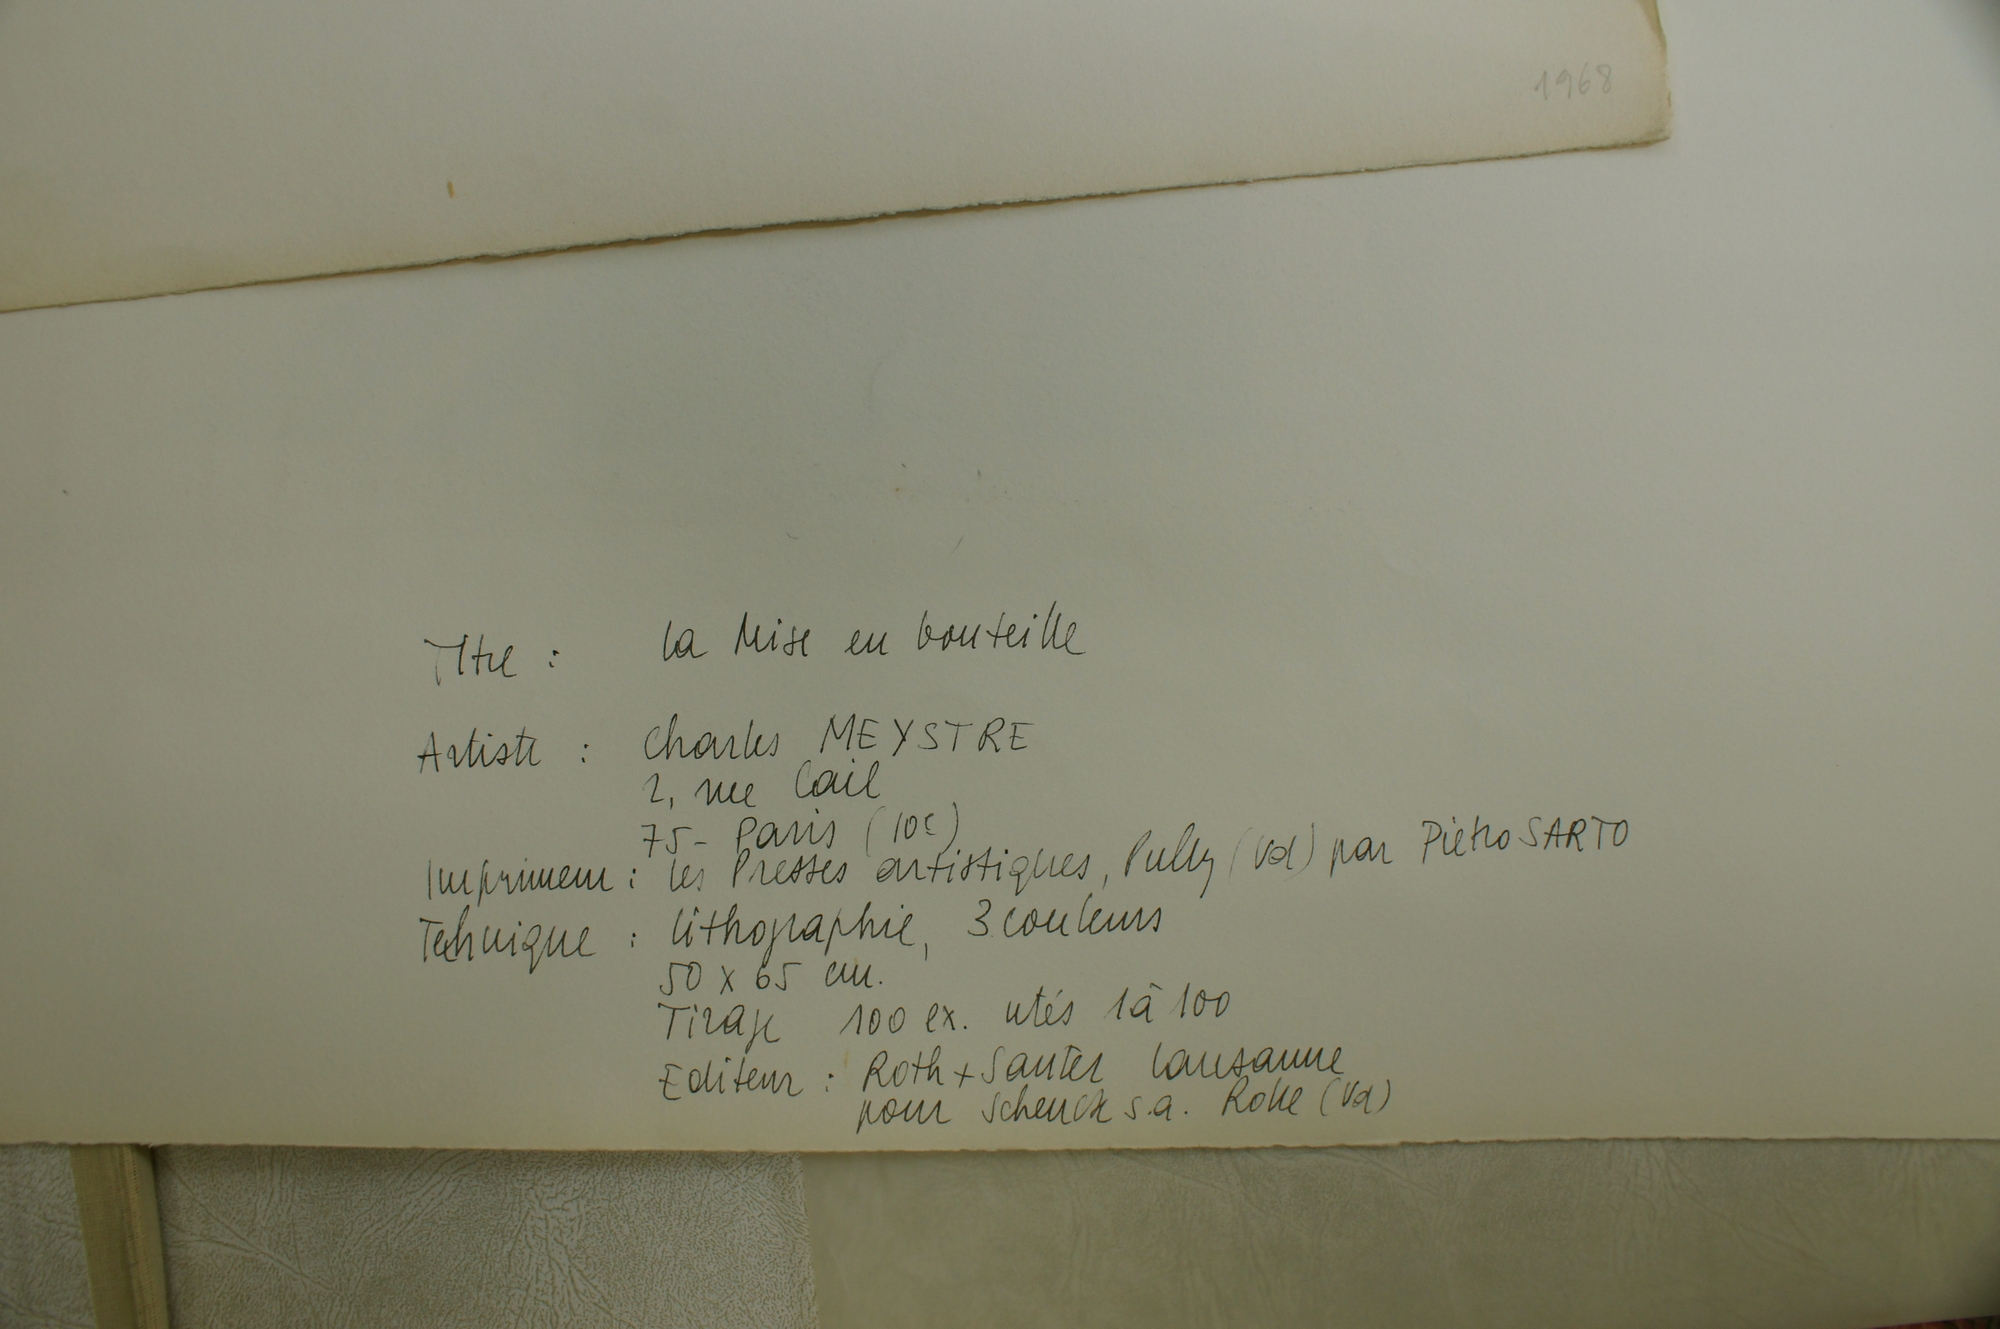 1968
Titre : La Mise en bouteille
Artiste : Charles MEYSTRE
2, rue Cail
75- Paris (10e)
Imprimeur : Les Presses artistiques, Pully (Vd) par Pietro SARTO
Technique : lithographie, 3 couleurs
50 x 65 cm.
Tirage 100 ex. ntés 1 à 100
Editeur : Roth + Sauter Lausanne
pour Schenck s.a. Rolle (Vd)